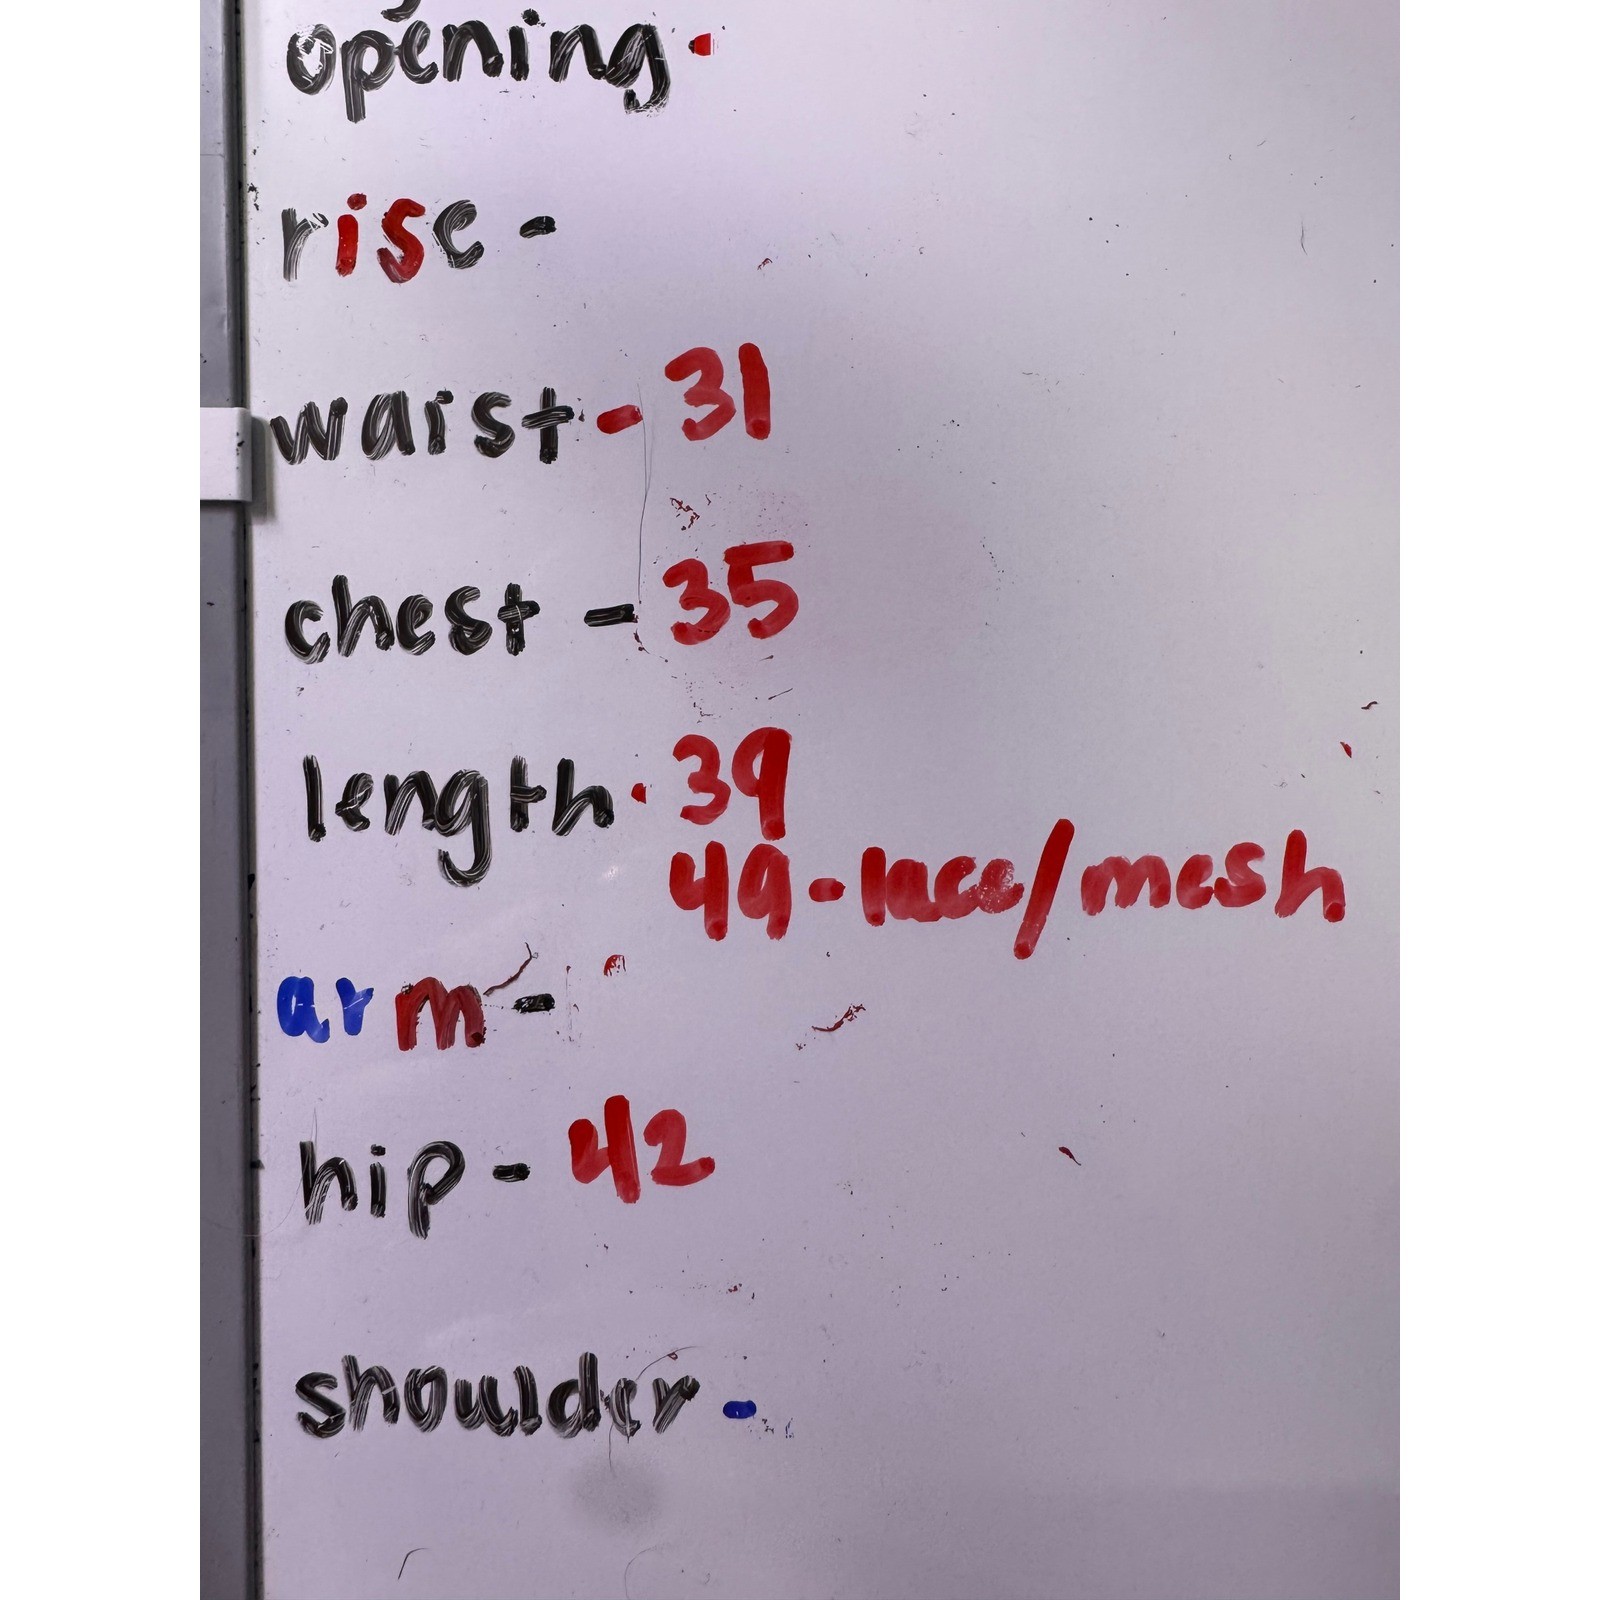 opening-
rise -
waist - 31
chest - 35
length - 39
49 - lace/mesh
arm -
hip - 42
shoulder -